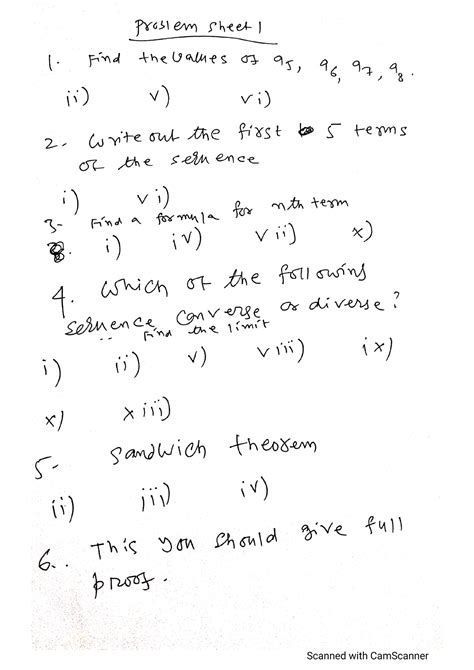 Problem sheet 1
1. Find the values of a5, a6, a7, a8.
ii) v) vi)
2. Write out the first 5 terms
of the sequence
i) vi)
3. Find a formula for nth term
i) iv) vii) x)
4. Which of the following
sequence converge or diverse?
Find the limit
i) ii) v) viii) ix)
x) xiii)
5- Sandwich theorem
ii) iii) iv)
6.. This you should give full
proof.
Scanned with CamScanner